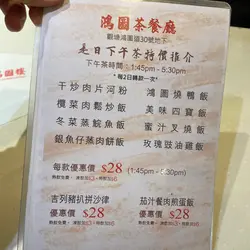 鴻圖茶餐廳
觀塘鴻圖道30號地下
是日下午茶特價推介
下午茶時間：1:45pm - 5:30pm
*每2日轉款一次*
干炒肉片河粉
鴻圖燒鴨飯
欖菜肉鬆炒飯
美味四寶飯
冬菜蒸鯇魚飯
蜜汁叉燒飯
銀魚仔蒸肉餅飯
玫瑰豉油雞飯
每款優惠價 $28 (1:45pm - 5:30pm)
吉列豬扒拼沙律
茄汁餐肉煎蛋飯
優惠價 $28
優惠價 $28